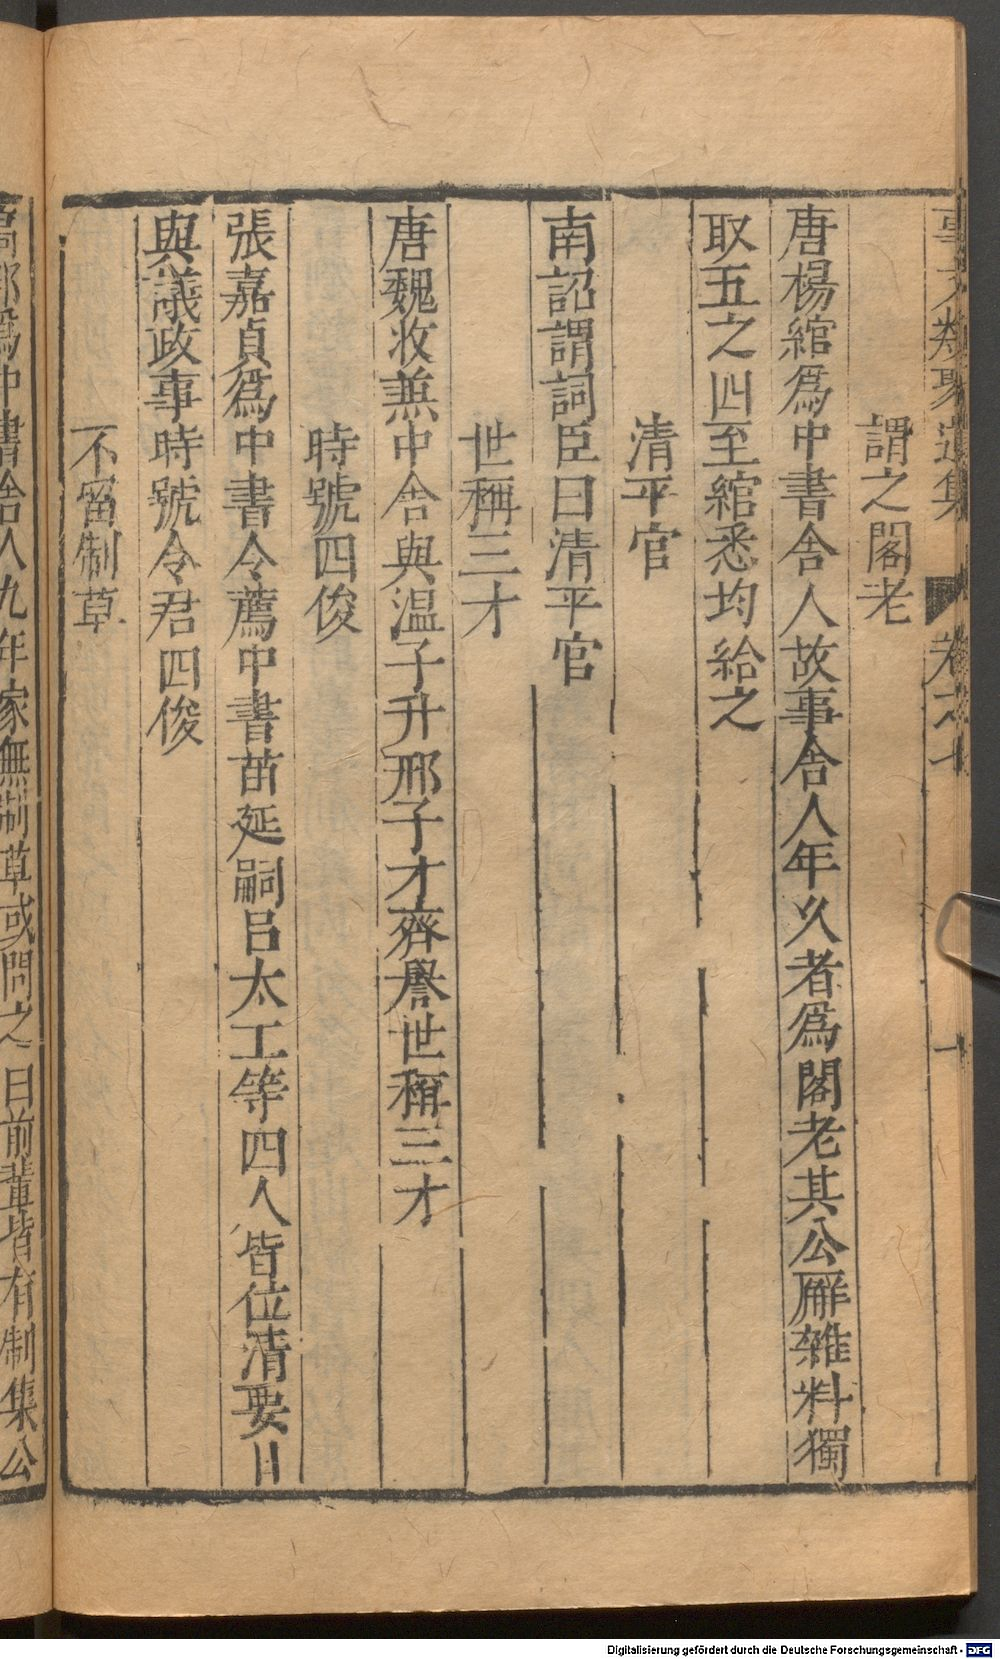 事文類聚遺集 卷之十 一
謂之閣老
唐楊綰爲中書舍人故事舍人年久者爲閣老其公廨雜料獨
取五之四至綰悉均給之
清平官
南詔謂詞臣曰清平官
世稱三才
唐魏收兼中舍與温子升邢子才齊譽世稱三才
時號四俊
張嘉貞爲中書令薦中書苗延嗣呂太工等四人皆位清要日
與議政事時號令君四俊
不留制草
高郢爲中書舍人九年家無制草或問之曰前輩皆有制集公
Digitalisierung gefördert durch die Deutsche Forschungsgemeinschaft - DFG